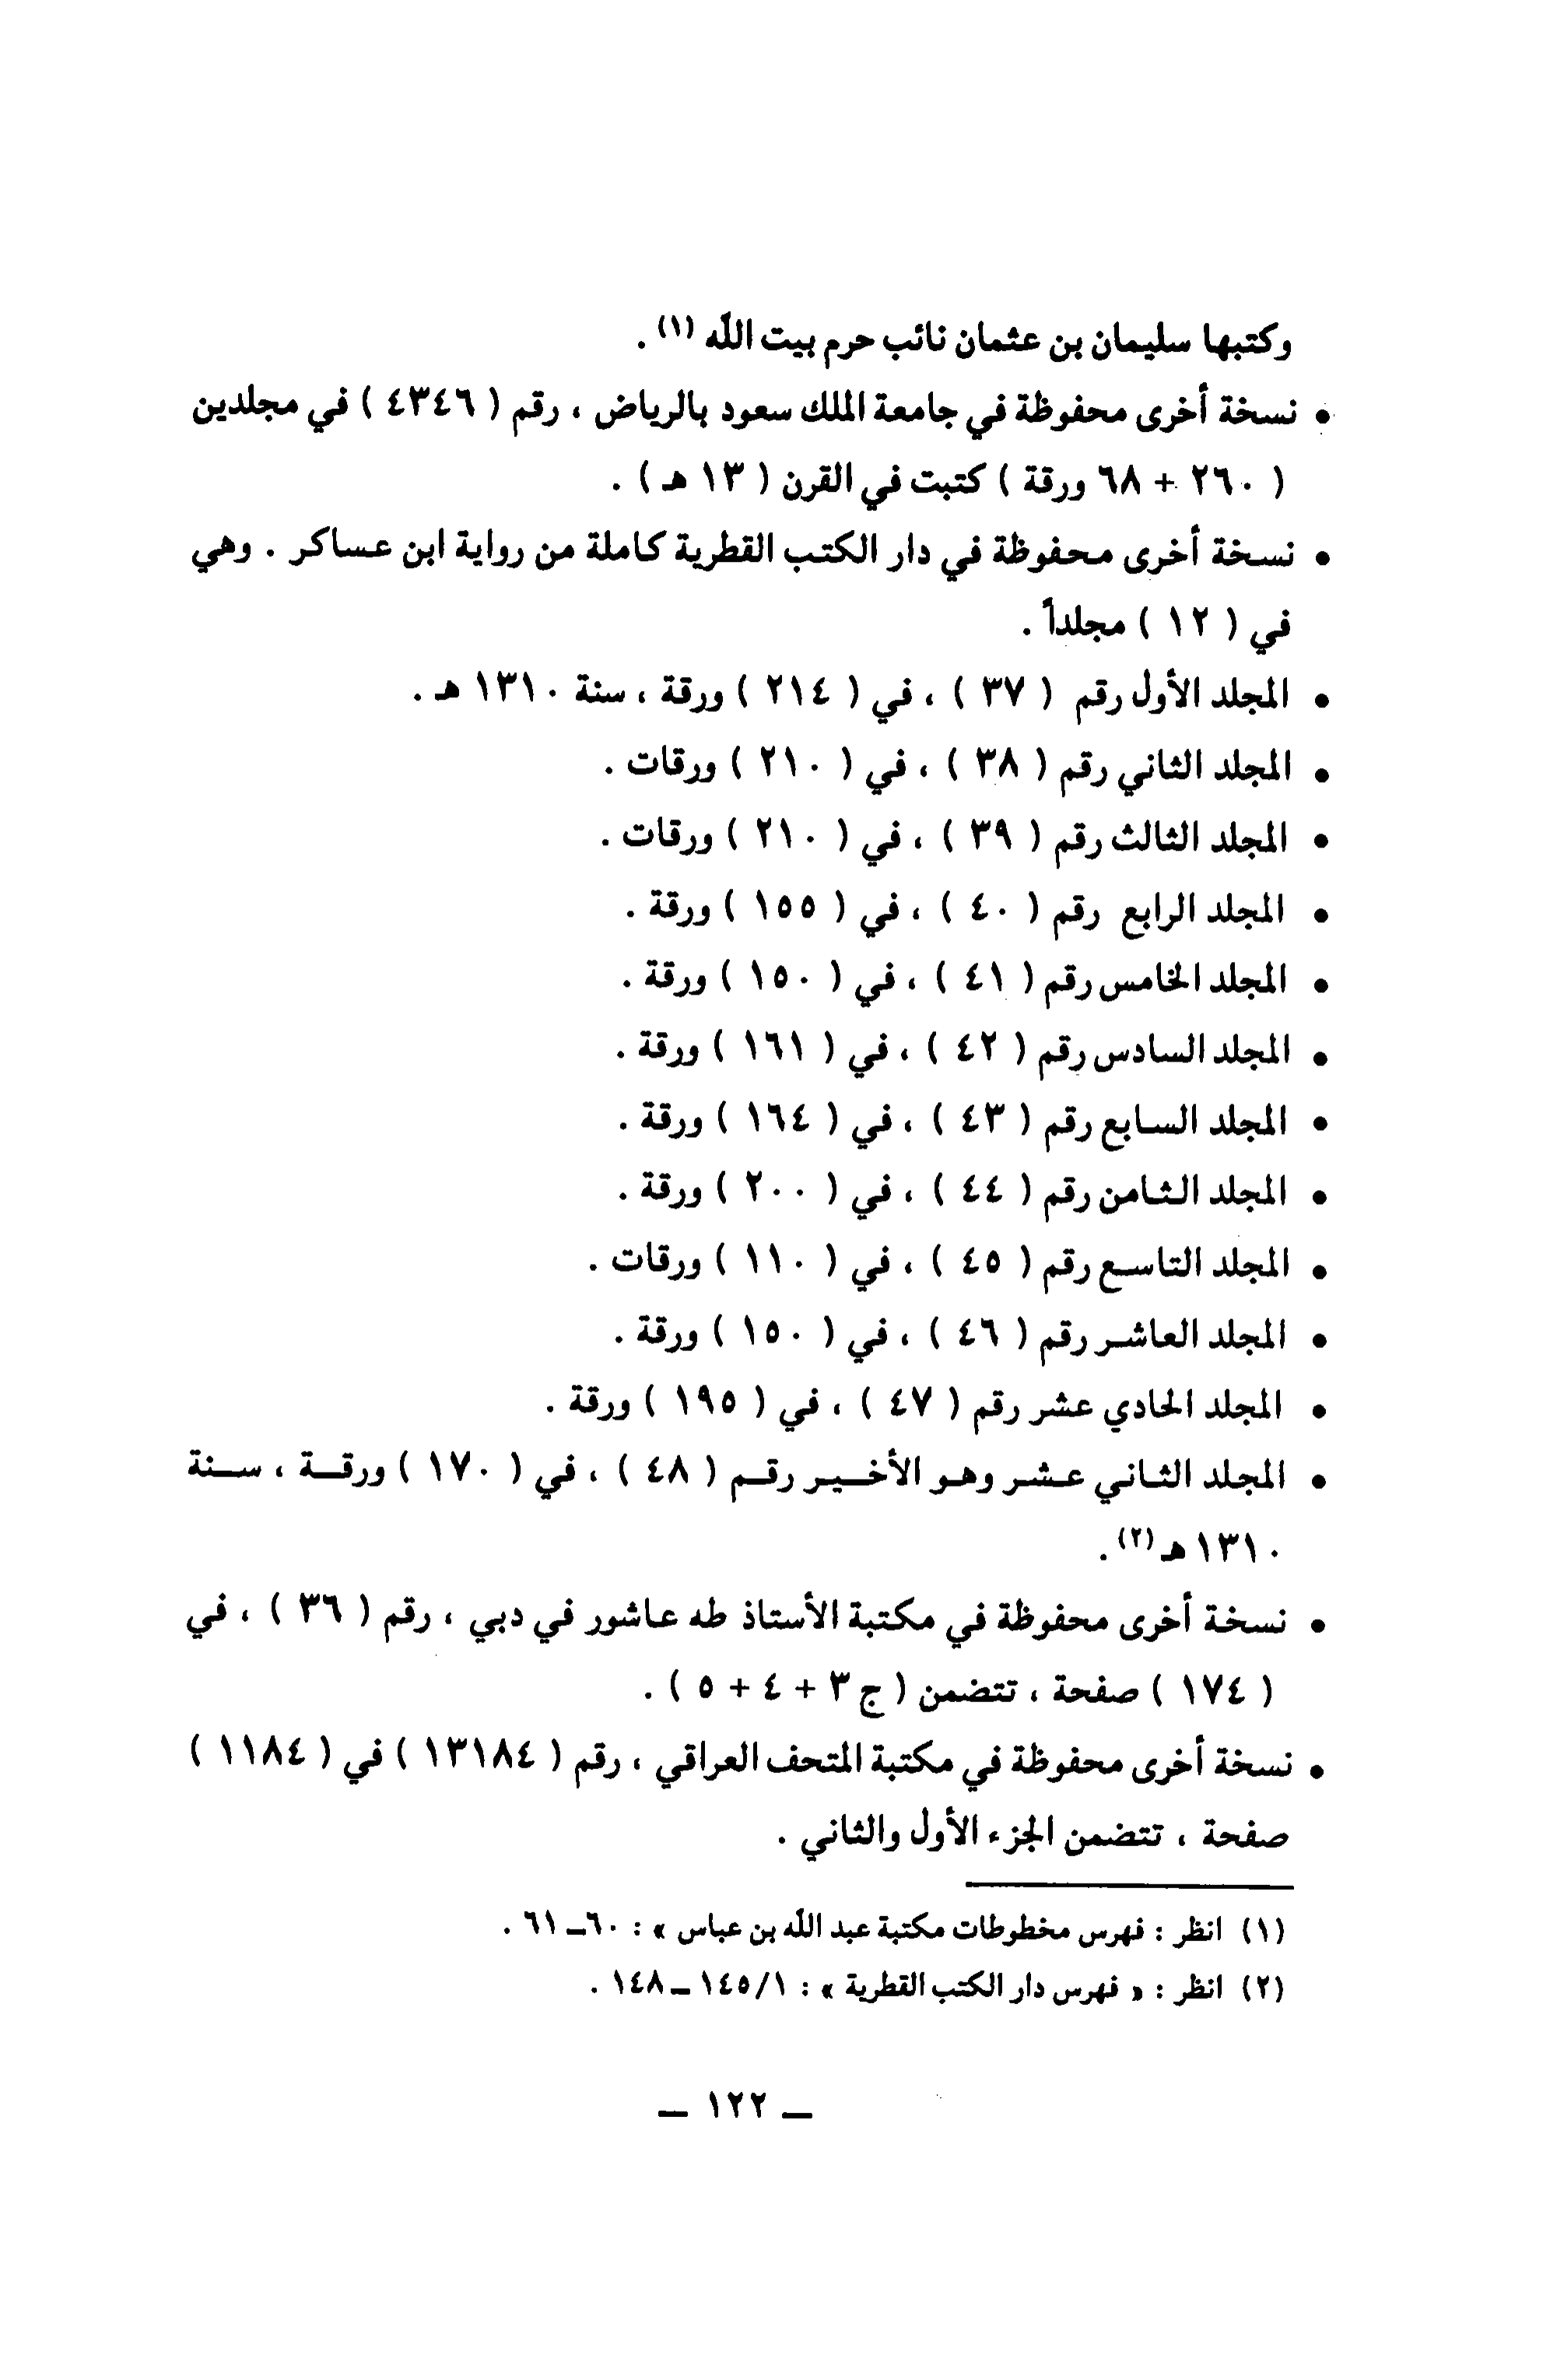 وكتبها سليمان بن عثمان نائب حرم بيت الله (١) .
• نسخة أخرى محفوظة في جامعة الملك سعود بالرياض ، رقم ( ٤٣٤٦ ) في مجلدين
( ٢٦٠ + ٦٨ ورقة ) كتبت في القرن ( ١٣ هـ ) .
• نسخة أخرى محفوظة في دار الكتب القطرية كاملة من رواية ابن عساكر . وهي
في ( ١٢ ) مجلداً .
• المجلد الأول رقم ( ٣٧ ) ، في ( ٢١٤ ) ورقة ، سنة ١٣١٠ هـ .
• المجلد الثاني رقم ( ٣٨ ) ، في ( ٢١٠ ) ورقات .
• المجلد الثالث رقم ( ٣٩ ) ، في ( ٢١٠ ) ورقات .
• المجلد الرابع رقم ( ٤٠ ) ، في ( ١٥٥ ) ورقة .
• المجلد الخامس رقم ( ٤١ ) ، في ( ١٥٠ ) ورقة .
• المجلد السادس رقم ( ٤٢ ) ، في ( ١٦١ ) ورقة .
• المجلد السابع رقم ( ٤٣ ) ، في ( ١٦٤ ) ورقة .
• المجلد الثامن رقم ( ٤٤ ) ، في ( ٢٠٠ ) ورقة .
• المجلد التاسع رقم ( ٤٥ ) ، في ( ١١٠ ) ورقات .
• المجلد العاشر رقم ( ٤٦ ) ، في ( ١٥٠ ) ورقة .
• المجلد الحادي عشر رقم ( ٤٧ ) ، في ( ١٩٥ ) ورقة .
• المجلد الثاني عشر وهو الأخير رقم ( ٤٨ ) ، في ( ١٧٠ ) ورقة ، سنة
١٣١٠ هـ (٢) .
• نسخة أخرى محفوظة في مكتبة الأستاذ طه عاشور في دبي ، رقم ( ٣٦ ) ، في
( ١٧٤ ) صفحة ، تتضمن ( ج ٣ + ٤ + ٥ ) .
• نسخة أخرى محفوظة في مكتبة المتحف العراقي ، رقم ( ١٣١٨٤ ) في ( ١١٨٤ )
صفحة ، تتضمن الجزء الأول والثاني .
(١) انظر : فهرس مخطوطات مكتبة عبد الله بن عباس » : ٦٠ـ ٦١ .
(٢) انظر : « فهرس دار الكتب القطرية » : ١٤٥/١ ـ ١٤٨ .
ـ ١٢٢ ـ